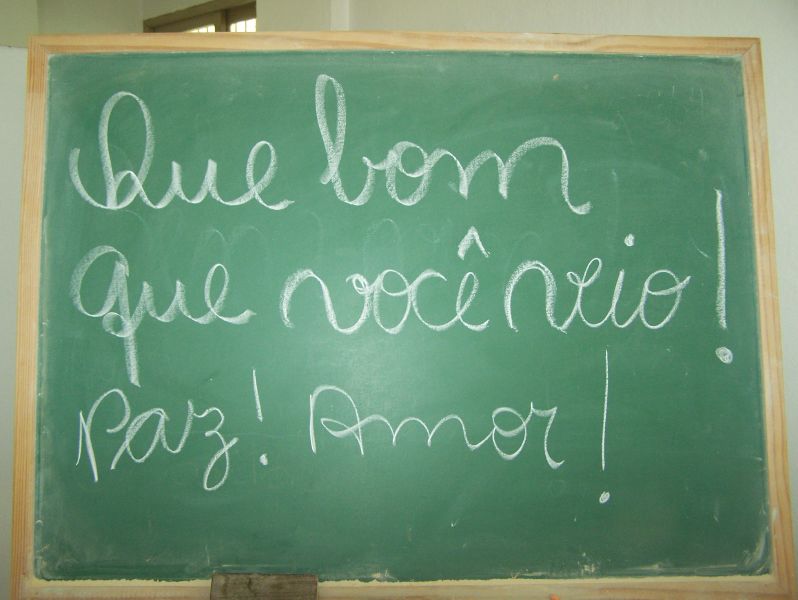 Que bom
que você veio!
Paz! Amor!